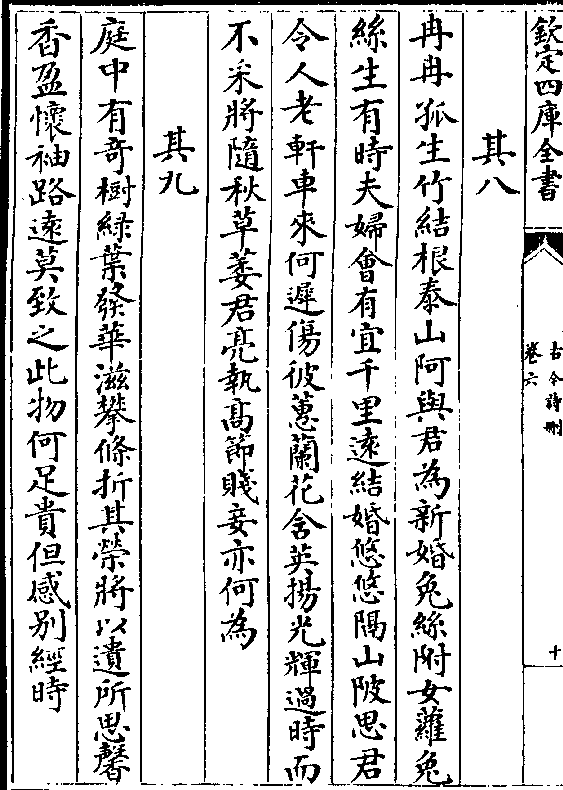 欽定四庫全書
古今詩刪
卷六
十
其八
冉冉孤生竹結根泰山阿與君為新婚兔絲附女蘿兔
絲生有時夫婦會有宜千里遠結婚悠悠隔山陂思君
令人老軒車來何遲傷彼蕙蘭花含英揚光輝過時而
不采將隨秋草萎君亮執高節賤妾亦何為
其九
庭中有奇樹綠葉發華滋攀條折其榮將以遺所思馨
香盈懷袖路遠莫致之此物何足貴但感别經時